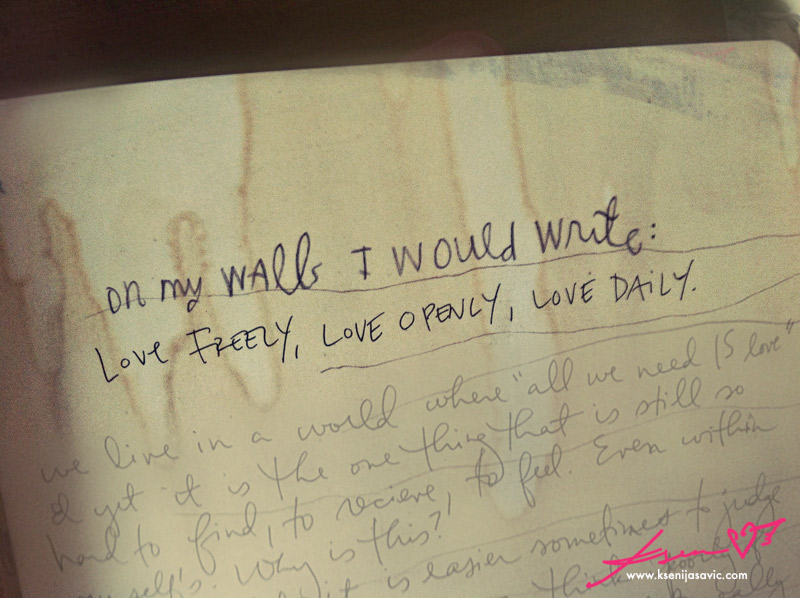 on my walls I would write:
Love Freely, Love Openly, Love Daily.
we live in a world where "all we need IS love"
& yet it is the one thing that is still so
hard to find, to recieve, to feel. Even within
myself's. Why is this?
it is easier sometimes to judge
think poorly
www.ksenijasavic.com